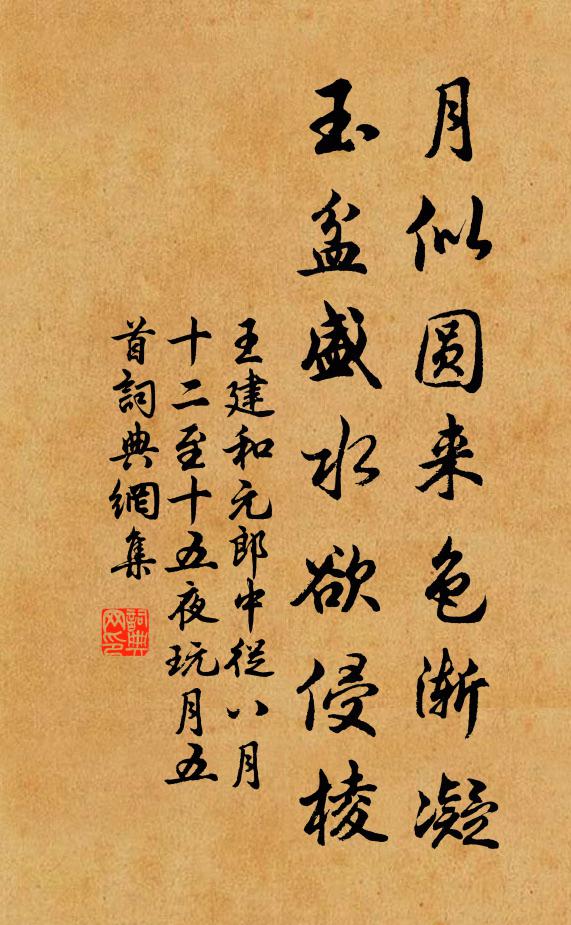 月似圆来色渐凝
玉盆盛水欲侵棱
王建和元郎中從八月
十二至十五夜玩月五
首詞典網集
詞典网印